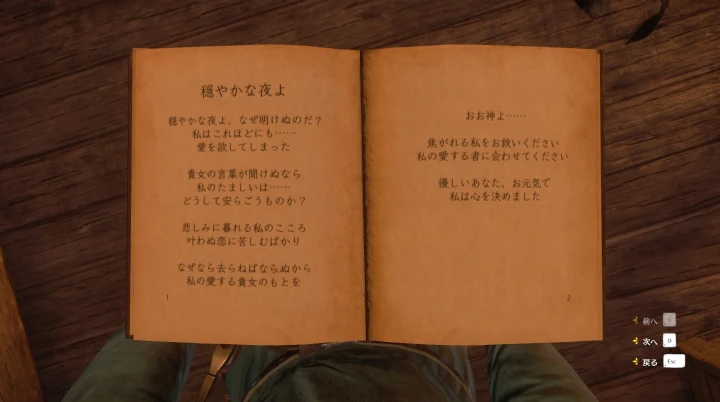 穏やかな夜よ
穏やかな夜よ、なぜ明けぬのだ?
私はこれほどにも……
愛を欲してしまった
貴女の言葉が聞けぬなら
私のたましいは……
どうして安らごうものか?
悲しみに暮れる私のこころ
叶わぬ恋に苦しむばかり
なぜなら去らねばならぬから
私の愛する貴女のもとを
1
おお神よ……
焦がれる私をお救いください
私の愛する者に会わせてください
優しいあなた、お元気で
私は心を決めました
2
前へ
次へ D
戻る Esc